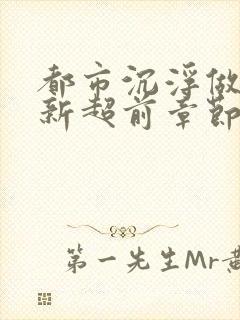 都市沉浮做
新超前章節
第一先生Mr黃